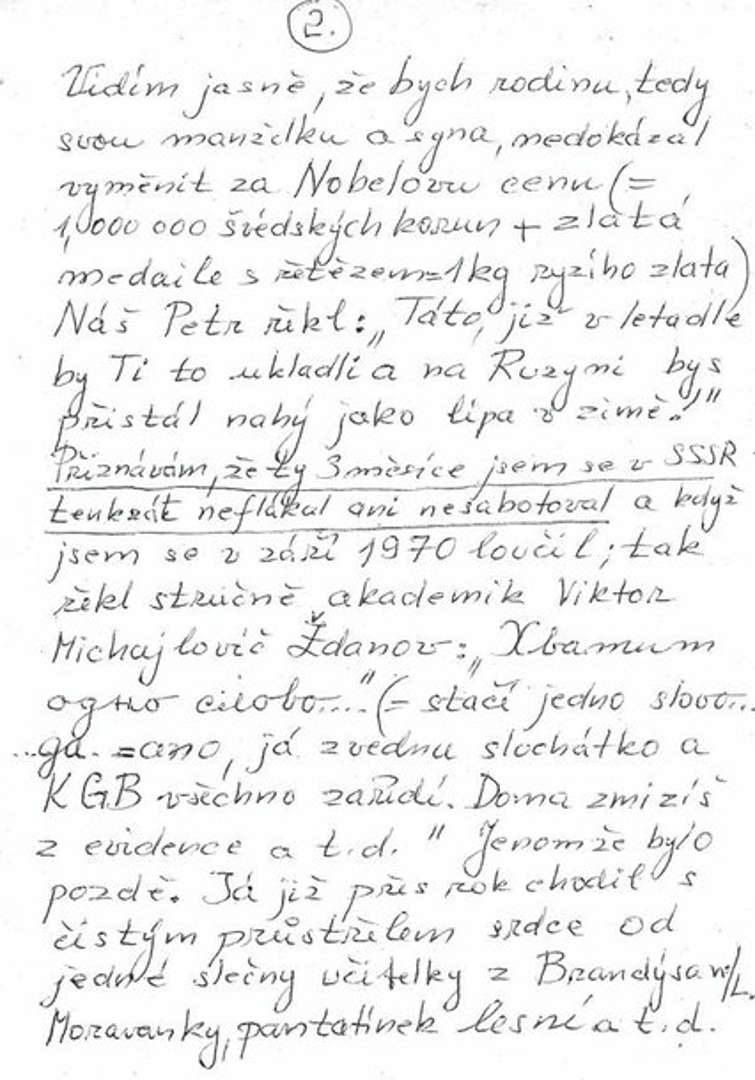 2.
Vidím jasně, že bych rodinu, tedy
svou manželku a syna, nedokázal
vyměnit za Nobelovu cenu (=
1,000 000 švédských korun + zlatá
medaile s řetězem=1kg ryzího zlata)
Náš Petr řekl: „Táto, již v letadle
by Ti to ukladli a na Ruzyni bys
přistál nahý jako lípa v zimě!"
Přiznávám, že ty 3 měsíce jsem se v SSSR
tenkrát neflákal ani nesabotoval a když
jsem se v září 1970 loučil; tak
řekl stručně akademik Viktor
Michajlovič Ždanov: „Хватит
одно слово...." (= stačí jedno slovo...
...да. =ano, já zvednu sluchátko a
KGB všechno zařídí. Doma zmizíš
z evidence a t.d. " Jenomže bylo
pozdě. Já již přes rok chodil s
čistým průstřelem srdce od
jedné slečny učitelky z Brandýsa n/L.
Moravanky, pantatínek lesní a t.d.